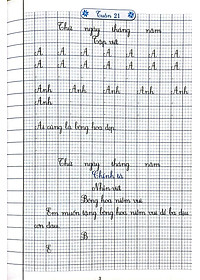 Tuần 21
Thứ ngày tháng năm
Tập viết
A A A A A A A
A A A A A A A
Anh Anh Anh Anh Anh
Anh
Ai cũng là bông hoa đẹp.
Thứ ngày tháng năm
Chính tả
Nhìn viết
Bông hoa niềm vui
Em muốn tặng bông hoa niềm vui để bố dịu
cơn đau.
B
E